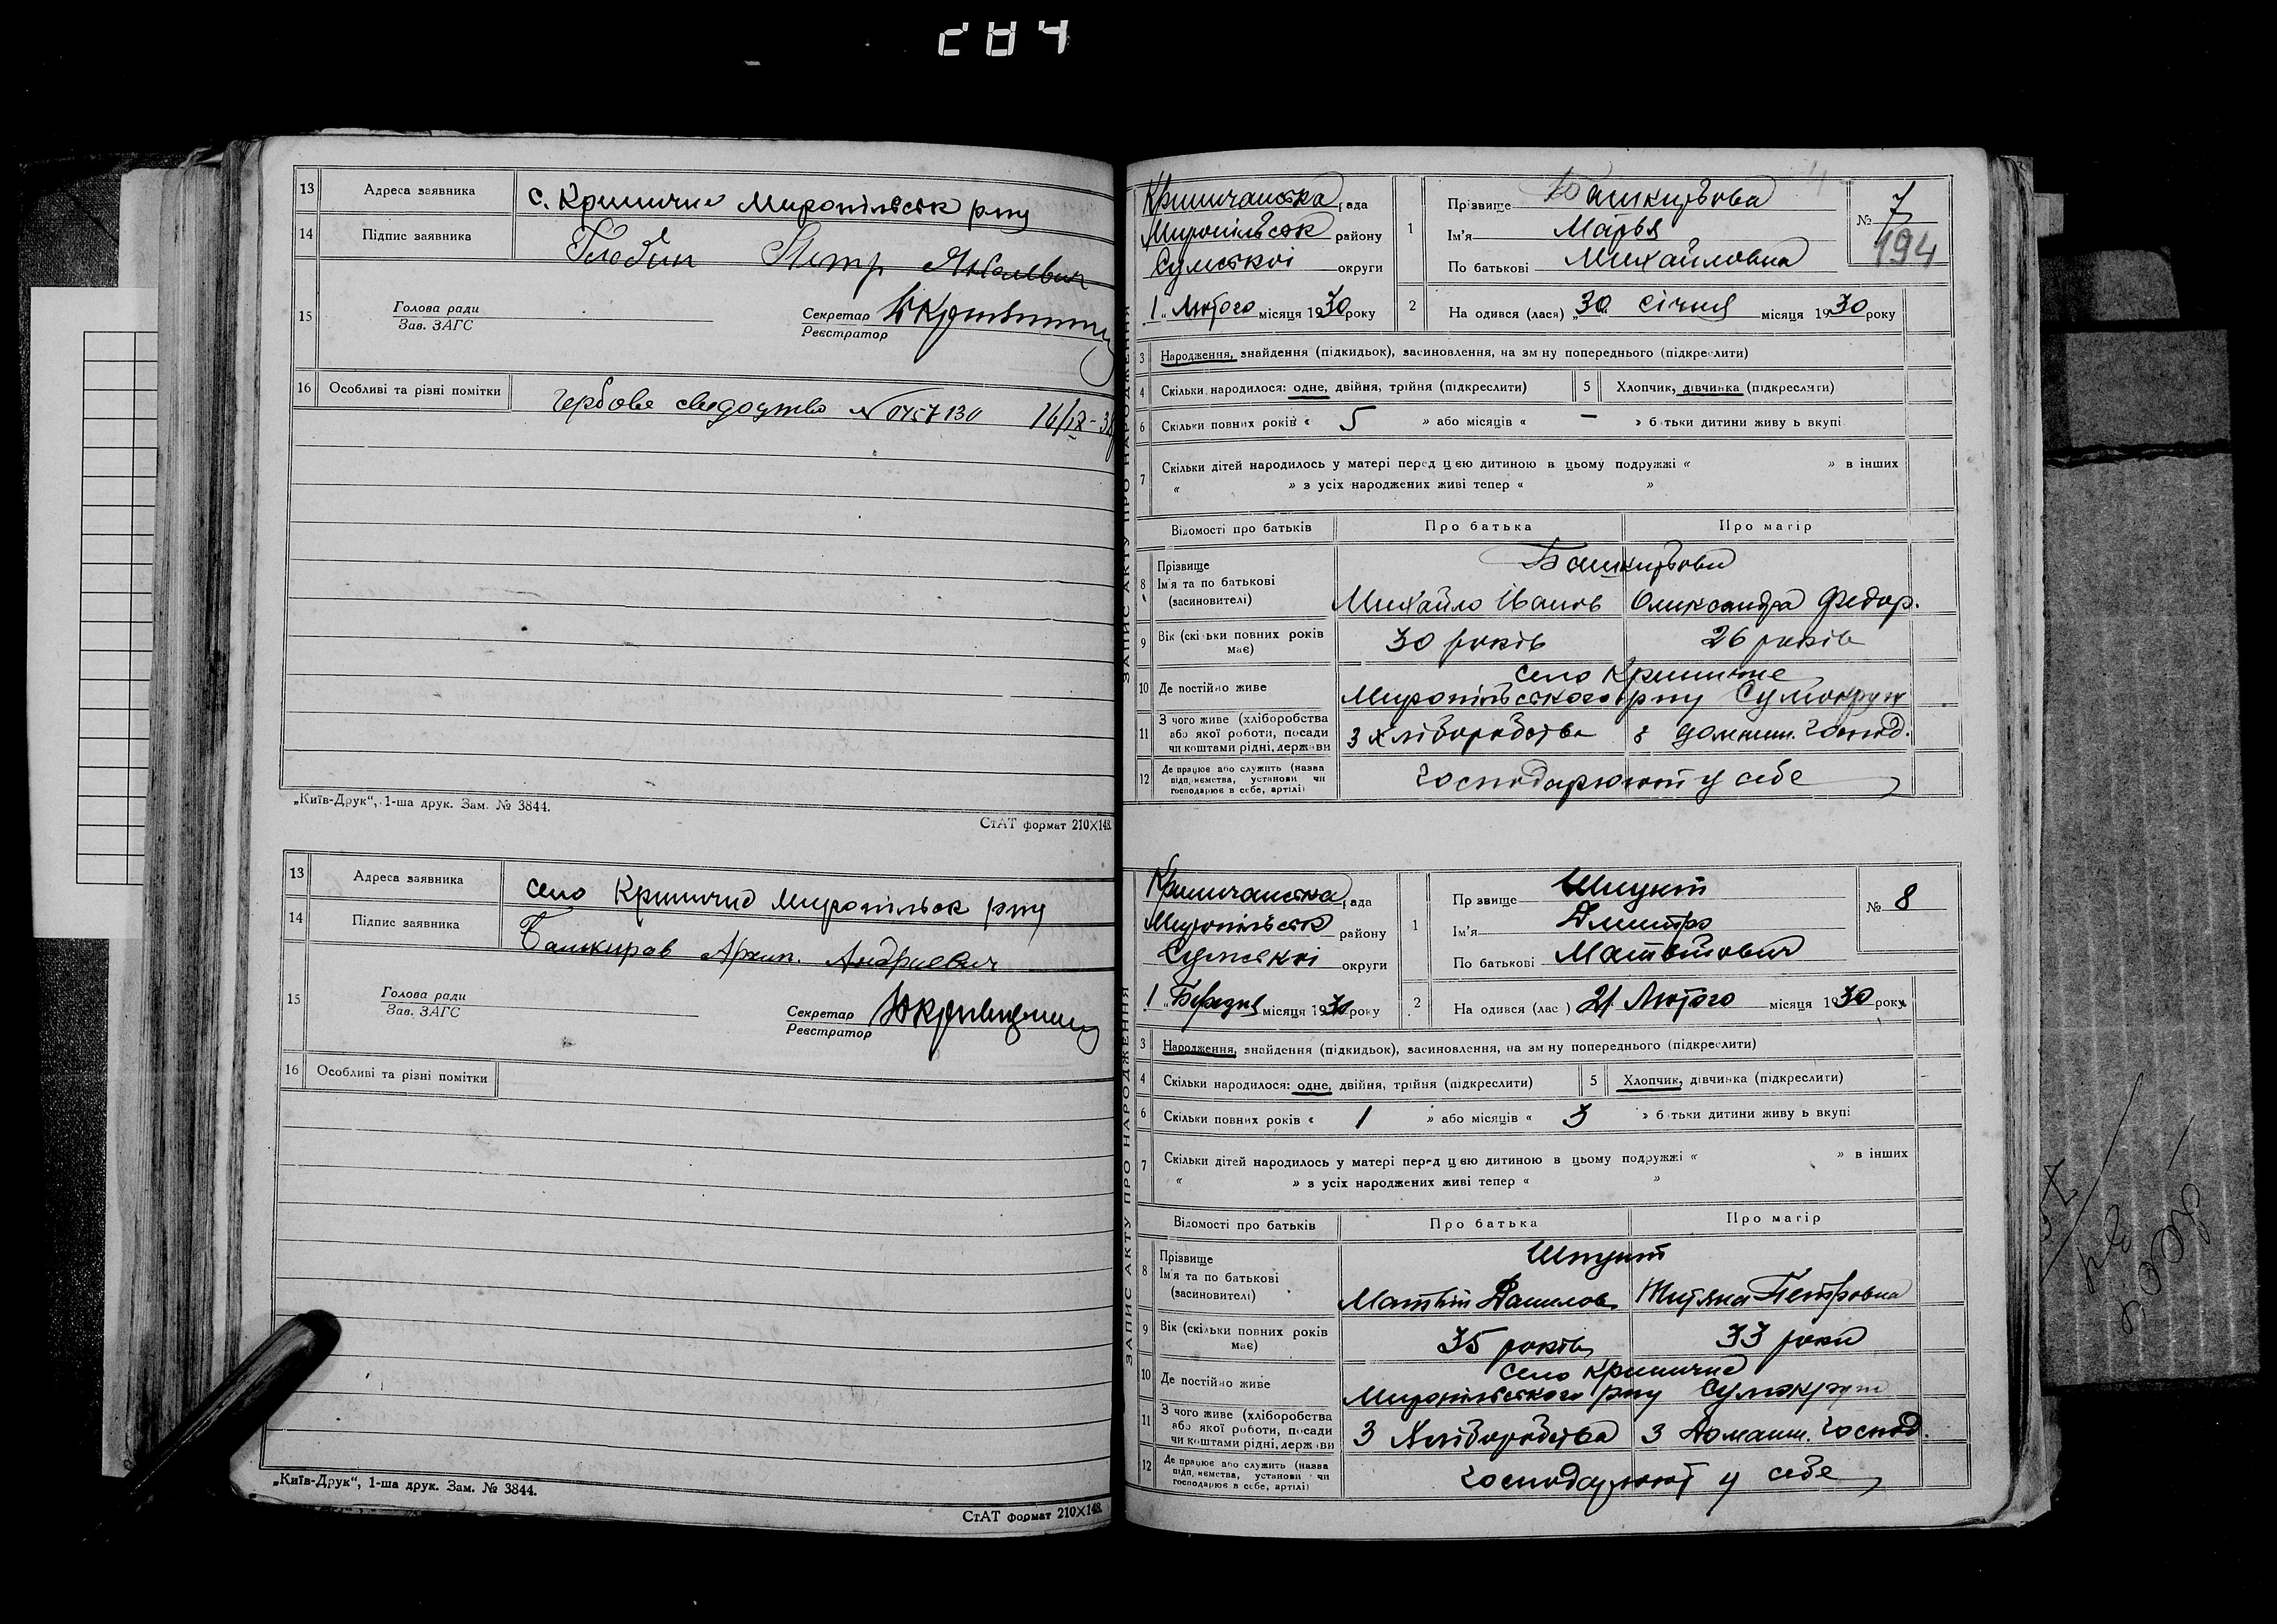 284
13 Адреса заявника с. Криничне Миропільськ рну
14 Підпис заявника Глобин Петр Яковлевич
15 Голова ради
Зав. ЗАГС
Секретар
Реєстратор
16 Особливі та різні помітки Гербове свидоцтво № 0457130 16/IX-38
„Київ-Друк“, 1-ша друк. Зам. № 3844.
СтАТ формат 210×148.
13 Адреса заявника село Криничне Миропільск рну
14 Підпис заявника Башкиров Архип. Андриевич
15 Голова ради
Зав. ЗАГС
Секретар
Реєстратор
16 Особливі та різні помітки
„Київ-Друк“, 1-ша друк. Зам. № 3844.
СтАТ формат 210×148.
ЗАПИС АКТУ ПРО НАРОДЖЕННЯ
Криничанська рада
Миропільськ району
Сумської округи
1 „ Лютого місяця 1930 року
1 Прізвище Башкирьова
Ім'я Марья
По батькові Михайловна
№ 7
194
2 На одився (лася) „30 січня місяця 1930 року
3 Народження, знайдення (підкидьок), засиновлення, на зм ну попереднього (підкреслити)
4 Скільки народилося: одне, двійня, трійня (підкреслити) 5 Хлопчик, дівчинка (підкреслити)
6 Скільки повних років « 5 » або місяців « — » б тьки дитини живу ь вкупі
7 Скільки дітей народилось у матері перед цею дитиною в цьому подружжі « » в інших
« » з усіх народжених живі тепер « »
Відомості про батьків Про батька Про матір
8 Прізвище Башкирьови
Ім'я та по батькові
(засиновителі) Михайло Іванов Олександра Федор.
9 Вік (скільки повних років має) 30 років 26 років
10 Де постійно живе село Криничне
Миропільського рну Сумокруг
11 З чого живе (хліборобства або якої роботи, посади чи коштами рідні, держави З хліборобства з домашн. господ.
12 Де працює або служить (назва підприємства, установи чи господарює в себе, артілі) господарюют у себе
ЗАПИС АКТУ ПРО НАРОДЖЕННЯ
Криничанська рада
Миропільськ району
Сумської округи
1 „ Березня місяця 1930 року
1 Пр звище
Ім'я Дмитро
По батькові Матвійович
№ 8
2 На одився (лас ) 21 Лютого місяця 1930 року
3 Народження, знайдення (підкидьок), засиновлення, на зм ну попереднього (підкреслити)
4 Скільки народилося: одне, двійня, трійня (підкреслити) 5 Хлопчик, дівчинка (підкреслити)
6 Скільки повних років « 1 » або місяців « 3 » б тьки дитини живу ь вкупі
7 Скільки дітей народилось у матері перед цею дитиною в цьому подружжі « » в інших
« » з усіх народжених живі тепер « »
Відомості про батьків Про батька Про матір
8 Прізвище
Ім'я та по батькові
(засиновителі) Матвій Данилов Титяна Петровна
9 Вік (скільки повних років має) 35 років 33 роки
10 Де постійно живе село Криничне
Миропільського рну Сумокруг
11 З чого живе (хліборобства або якої роботи, посади чи коштами рідні, держави З Хліборобства З Домашн. господ.
12 Де працює або служить (назва підприємства, установи чи господарює в себе, артілі) господарюют у себе